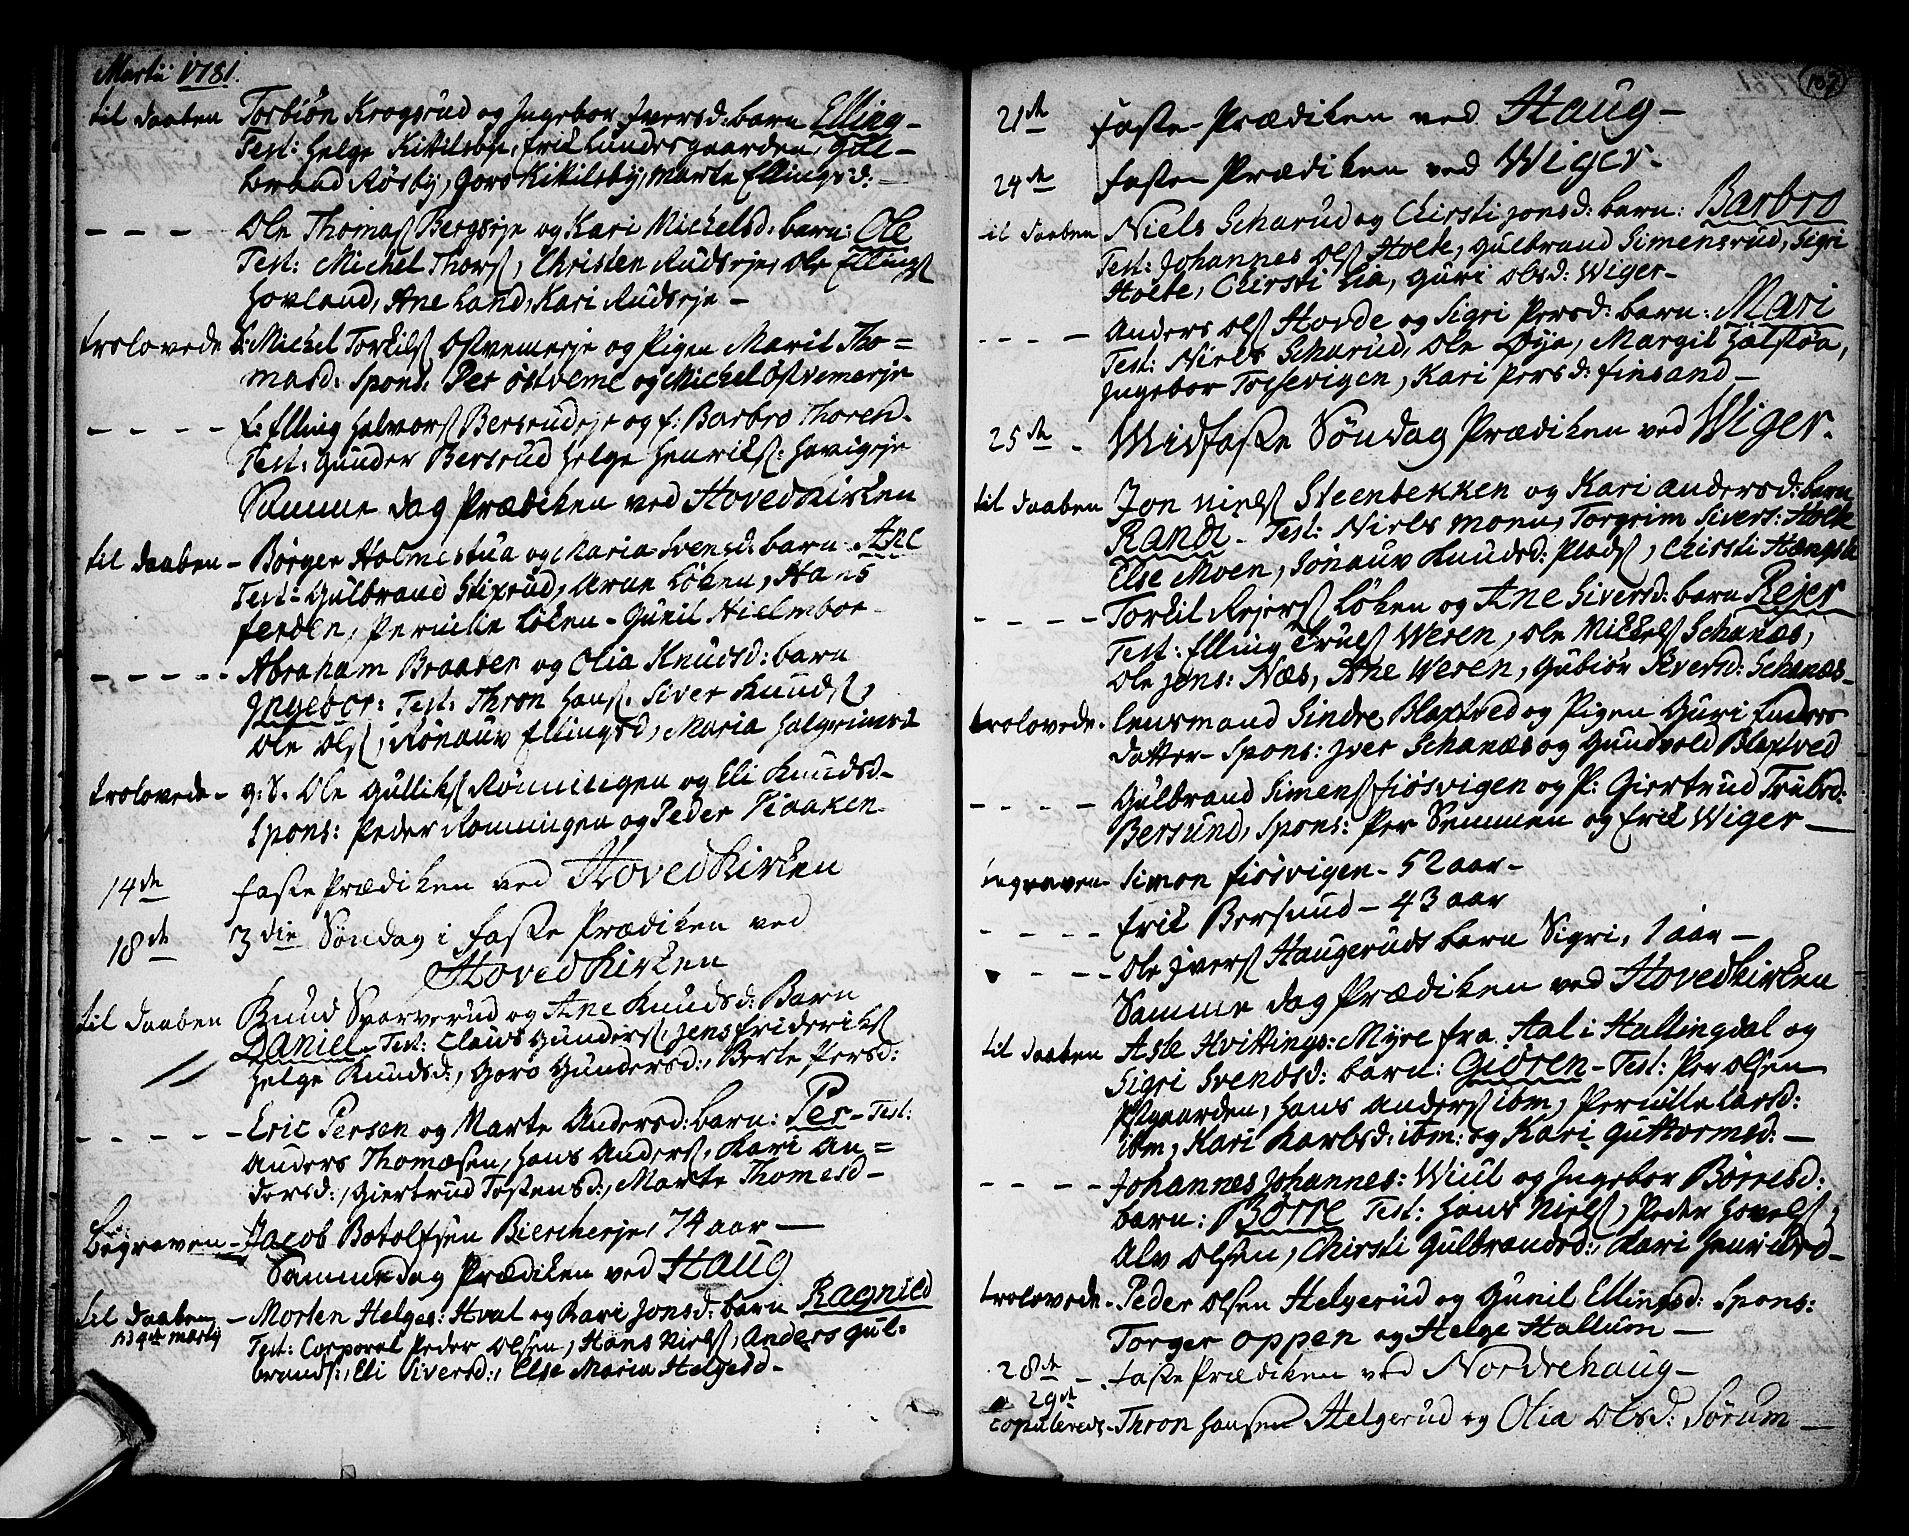 Martii 1781.
til daaben Torbiön Krogsrud og Ingebor Iversd: barn Elling –
Test: Helge Kikilsbye, Erik Lundesgaarden, Gul–
brand Røsby, Goro Kikilsby, Marte Ellingsd: –
– – – – Ole Thomas Bergseje og Kari Michelsd: barn: Ole
Test: Michel Thors, Christen Rudseje, Ole Ellings
Hovland, Ane Land, Kari Rudseje –
trolovede Michel Torkils Østvemeje og Pigen Marit Tho=
masd: Spons: Per Østveme og Michel Østvemeje
– – – – E: Elling Halvors Bersrudeje og E: Barbro Thoren.
Test: Gunder Bersrud Helge Henriks: Hovigeje
Samme dag Prædiken ved Hovedkirken
til daaben – Børger Holmestua og Maria Svensd: barn Ane
Test: Gulbrand Stixrud, Arne Løken, Hans
ferden, Pernille Løken – Gunil Nielmboe –
– – – – – Abraham Braaten og Olia Knudsd: barn
Ingebor: Test: Thron Hans, Siver Knuds,
Ole Ols, Rønauv Ellingsd, Maria Halgrimsd
trolovede – g: S. Ole Gulliks Rønningen og Eli Knudsd –
Spons: Peder Rønningen og Peder Fioaken
14de faste Prædiken ved Hovedkirken
18de 3die Søndag i faste Prædiken ved
Hovedkirken
til daaben Knud Sparverud og Ane Knudsd: Barn
Daniel – Test: Claus Gunders, Jens frideriks
Helge Knudsd:, Goro Gundersd:, Berte Persd:
– – – – – Eric Persen og Marte Andersd: barn: Per – Test:
Anders Thomæsen, Hans Anders, Kari An=
dersd:, Giertrud Tostensd:, Marte Thomesd –
Begraven – Jacob Botolfsen Biercheeje, 74 aar –
Samme dag Prædiken ved Haug
til daaben – Morten Helges: Hval og Kari Jonsd: barn Ragnild
Test: Corporal Peder Olsen, Hans Niels, Anders Gul-
brands:, Eli Siversd:, Else Maria Helgesd –
107
21de faste Prædiken ved Haug –
24de faste Prædiken ved Wiger –
til daaben Niels Scharud og Chirsti Jonsd: barn: Barbro
Test: Johannes Ols Holte, Gulbrand Simensrud, Sigri
Holte, Chirsti Lia, Guri Olsd: Wiger –
– – – – Anders Ols Hovde og Sigri Persd: barn: Mari
Test: Niels Scharud, Ole Øye, Margit Hætstøa,
Ingebor Tossevigen, Kari Persd: Finsand –
25de – Midfaste Søndag Prædiken ved Wiger.
til daaben Jon Niels Steenbekken og Kari Andersd: barn
Randi – Test: Niels Moen, Torgrim Sivers: Holte
Else Moen, Sønauv Knudsd: Plads, Chirsti Hængsle
– – – – Torkil Rejers Løken og Ane Siversd: barn Rejer
Test: Elling Truls Weren, Ole Mikkels Schanæs,
Ole Jens: Næs, Ane Weren, Gubiør Siversd: Schanæs –
trolovede – Lensmand Sindre Blaxtved og Pigen Guri Enders
datter – Spons: Iver Schanæs og Gundvold Blaxtved
– – – – Gulbrand Simens Fiøsvigen og P: Giertrud Trulsd:
Bersund, Spons: Per Semmen og Erik Wiger –
begraven – Simon Fiøsvigen – 52 aar –
– – – – Erik Bersund – 43 aar
– – – – Ole Ivers Haugeruds barn Sigri, 1 aar –
Samme dag Prædiken ved Hovedkirken
til daaben Asle Hvittings: Myre fra Aal i Hallingdal og
Sigri Svendsd: barn: Giøren – Test: Per Olsen
Østgaarden, Hans Anders ibm, Pernille Larsd:
ibm, Kari Karlsd: ibm: og Kari Guttormsd: –
– – – – Johannes Johannes: Wiul og Ingebor Børresd:
barn: Børre Test: Hans Niels, Peder Hovels,
Alv Olsen, Chirsti Gulbrandsd:, Kari Henrichsd –
trolovede – Peder Olsen Helgerud og Gunil Ellingsd: Spons:
Torger Oppen og Helge Hallum –
28de – faste Prædiken ved Nordrehaug –
29de
copulerede – Thron Hansen Helgerud og Olia Olsd: Sørum –